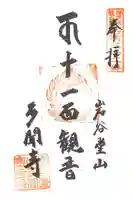 奉拝
岩谷堂山
十一面観音
多聞寺